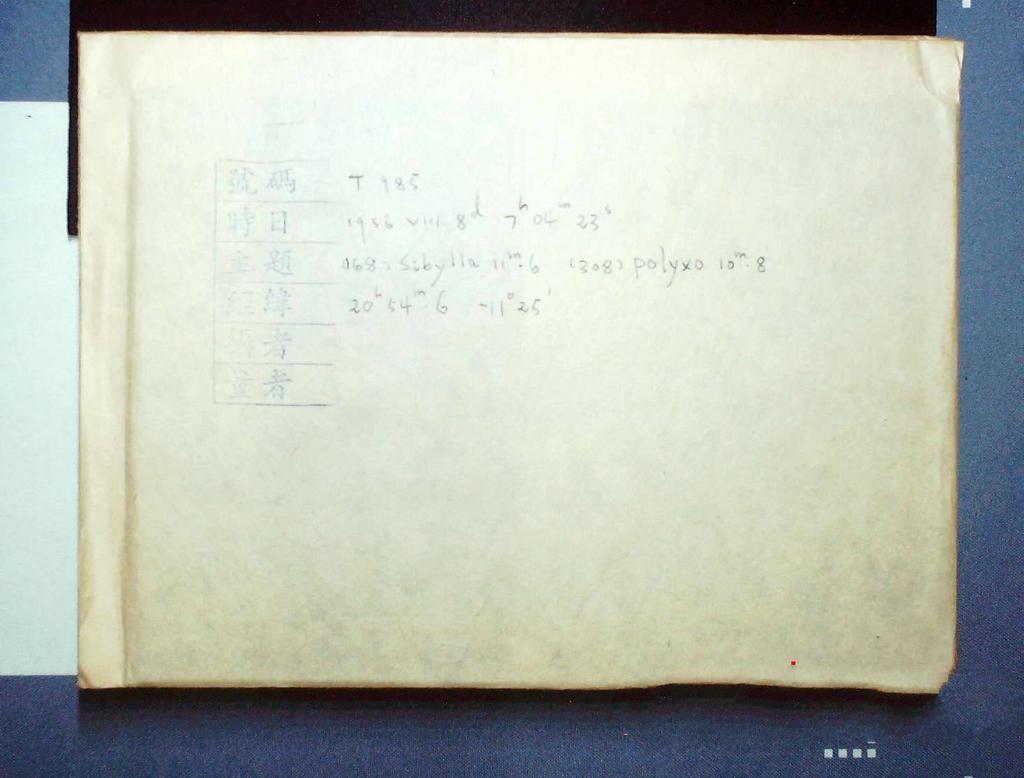 號碼 T 985
時日 1956 VIII 8ᵈ 7ʰ 04ᵐ 23ˢ
主題 (168) Sibylla 11ᵐ.6 (308) polyxo 10ᵐ.8
經緯 20ʰ 54ᵐ.6 -11° 25'
者
量者